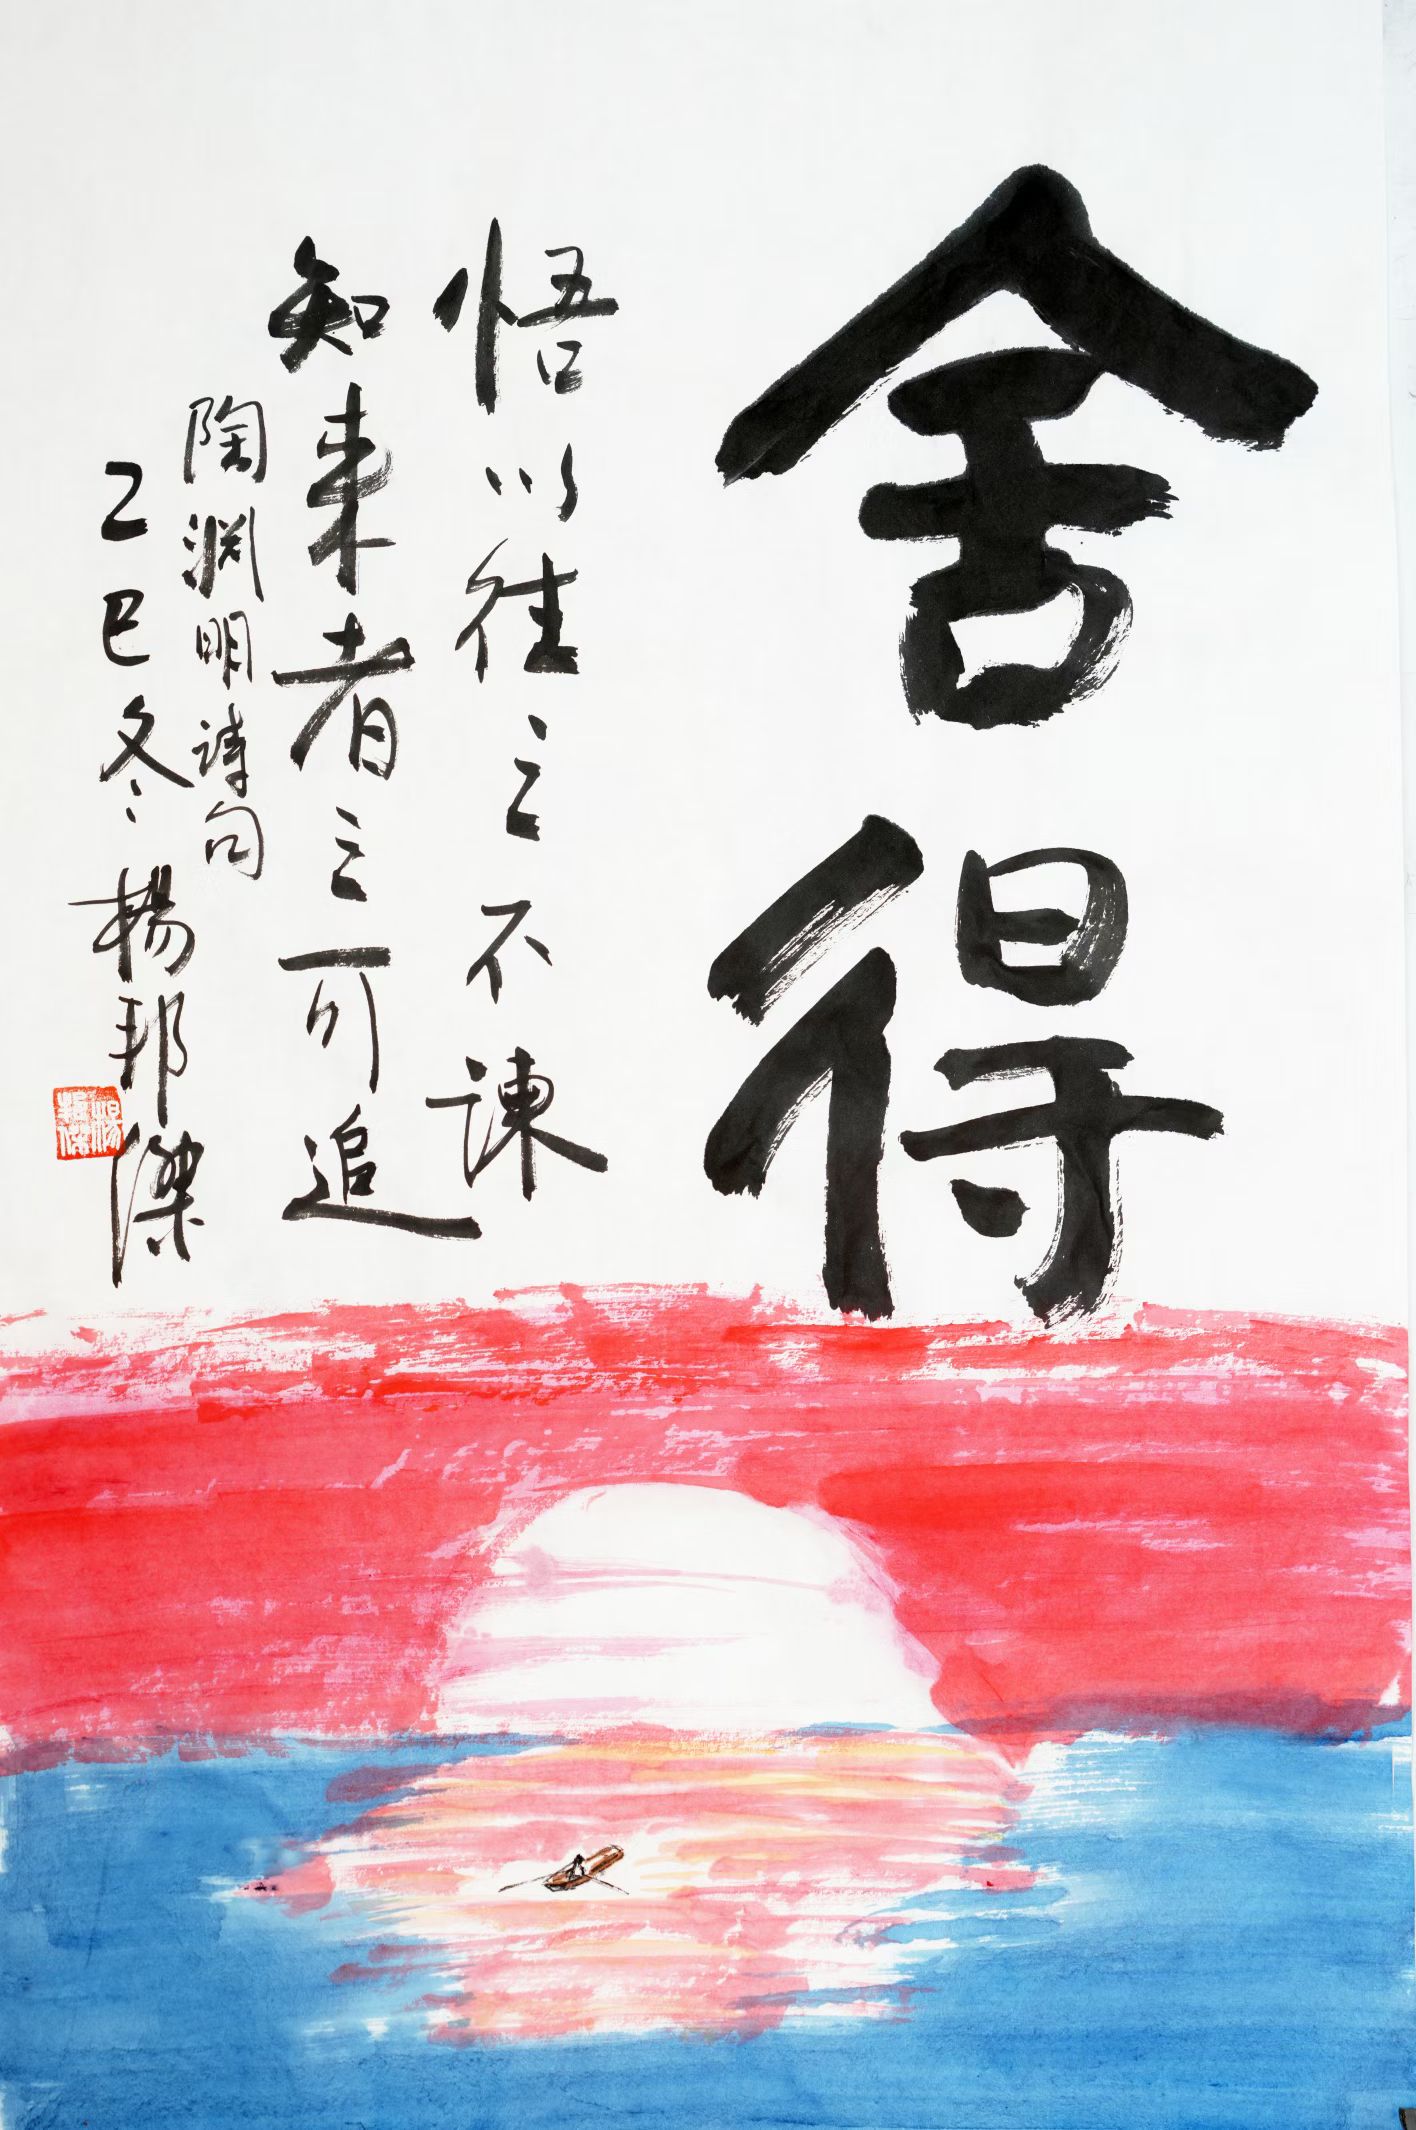 舍得
悟以往之不諫
知来者之可追
陶渊明诗句
乙巳冬杨邦傑